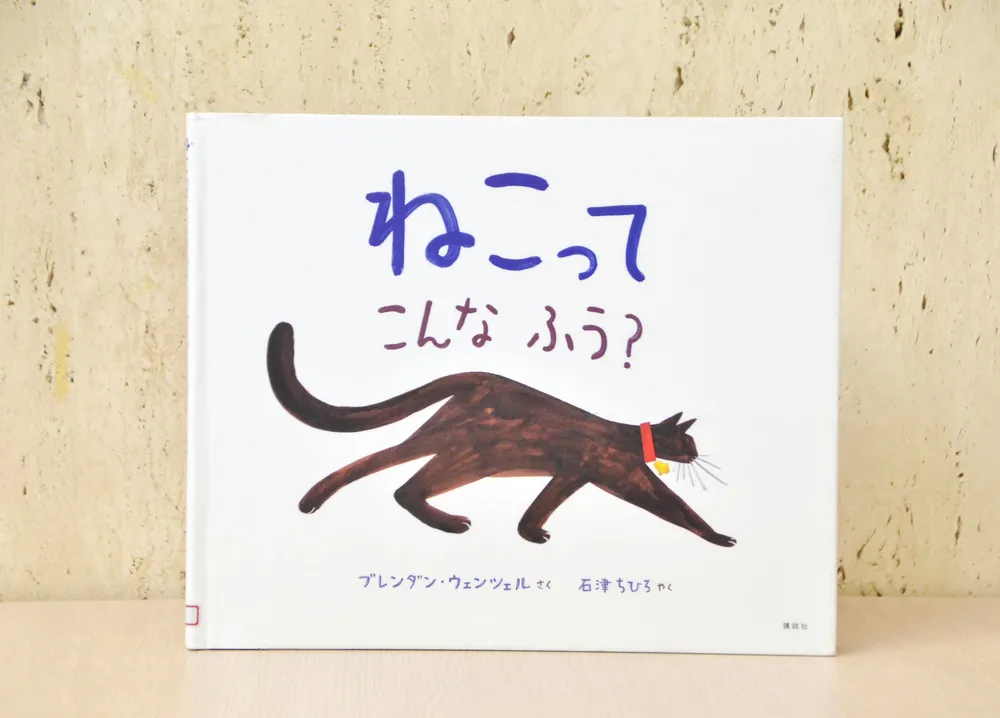 ねこって
こんな ふう?
ブレンダン・ウェンツェル さく 石津 ちひろ やく
講談社